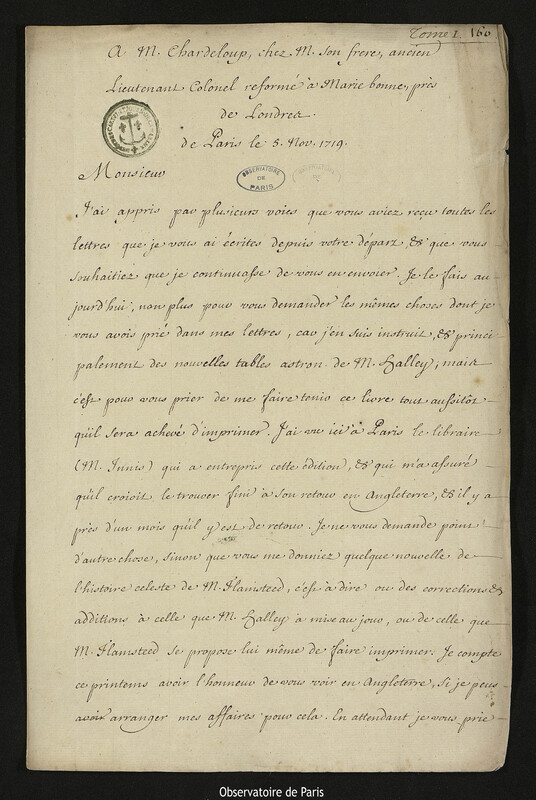 Tome I. 160
A M. Chardeloup, chez M. son frere, ancien
Lieutenant Colonel reformé à Marie bonne, près
de Londres.
de Paris le 5. Nov. 1719.
OBSERVATOIRE
DE
PARIS
Monsieur
J'ai appris par plusieurs voies que vous aviez reçu toutes les
lettres que je vous ai écrites depuis votre départ, & que vous
souhaitiez que je continuasse de vous en envoier. Je le fais au-
jourd'hui, non plus pour vous demander les mêmes choses dont je
vous avois prié dans mes lettres, car j'en suis instruit, & princi-
palement des nouvelles tables astron. de M. Halley, mais
c'est pour vous prier de me faire tenir ce livre tout aussitôt
qu'il sera achevé d'imprimer. J'ai vu ici à Paris le libraire
(M. Innis) qui a entrepris cette édition, & qui m'a assuré
qu'il croioit le trouver fini à son retour en Angleterre, & il y a
près d'un mois qu'il y est de retour. Je ne vous demande point
d'autre chose, sinon que vous me donniez quelque nouvelle de
l'histoire celeste de M. Flamsteed, c'est à dire ou des corrections &
additions à celle que M. Halley a mise au jour, ou de celle que
M. Flamsteed se propose lui même de faire imprimer. Je compte
ce printems avoir l'honneur de vous voir en Angleterre, si je peus
avoir arranger mes affaires pour cela. En attendant je vous prie
Observatoire de Paris